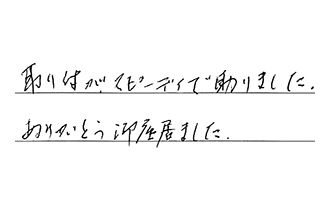 取り付がスピーディで助りました.
ありがとう御座居ました.